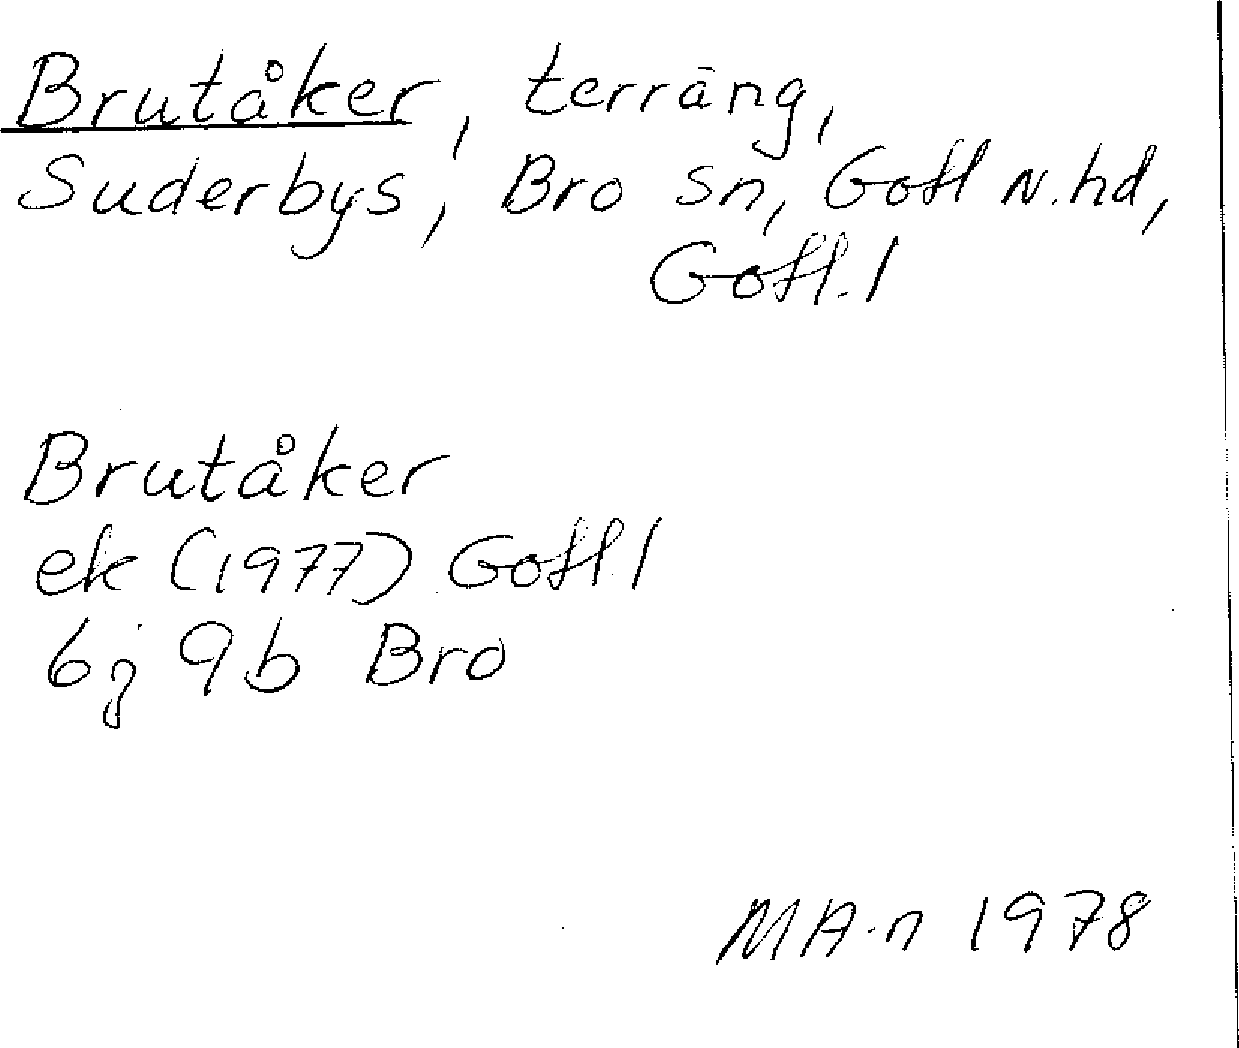 Brutåker, terräng,
Suderbys, Bro sn, Gotl N. hd,
Gotl. l
Brutåker
ek (1977) Gotl l
6j 9b Bro
MA-n 1978